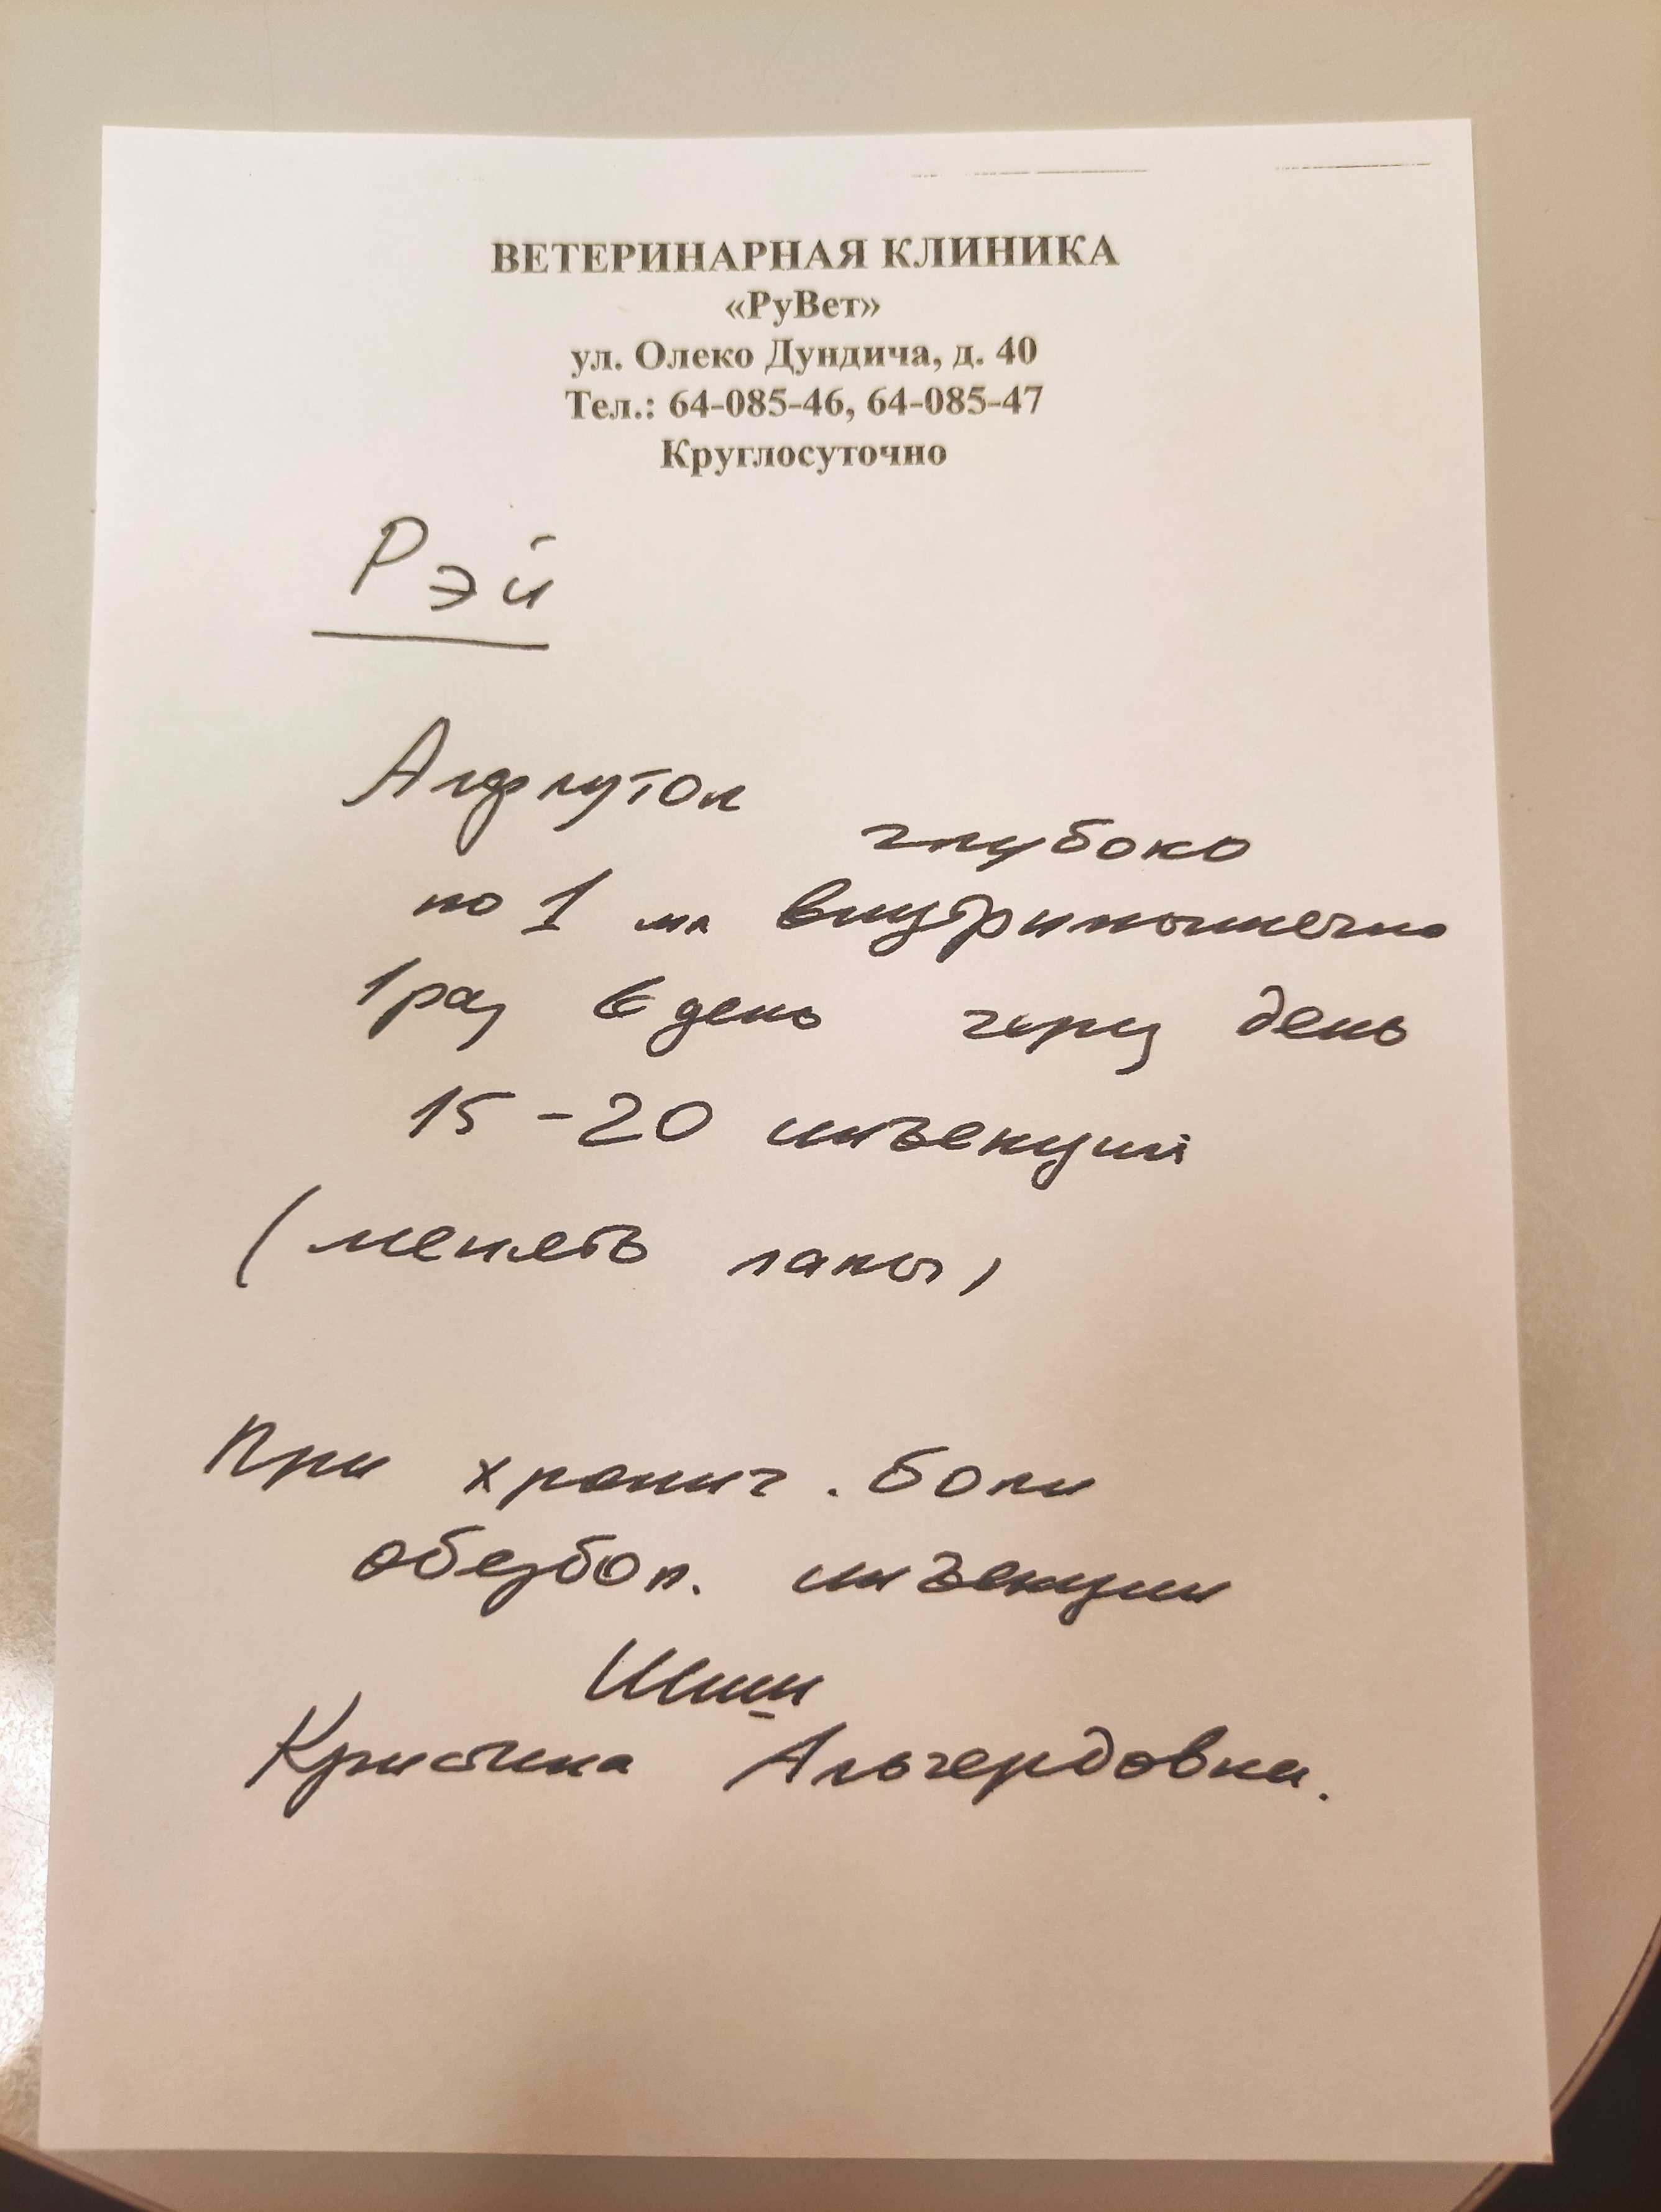 ВЕТЕРИНАРНАЯ КЛИНИКА
«РуВет»
ул. Олеко Дундича, д. 40
Тел.: 64-085-46, 64-085-47
Круглосуточно
Рэй
Алфлутоп
глубоко
по 1 мл внутримышечно
1 раз в день через день
15-20 инъекций
(менять лапы)
При хронич. боли
обезбол. инъекции
Кристина Альгердовна.